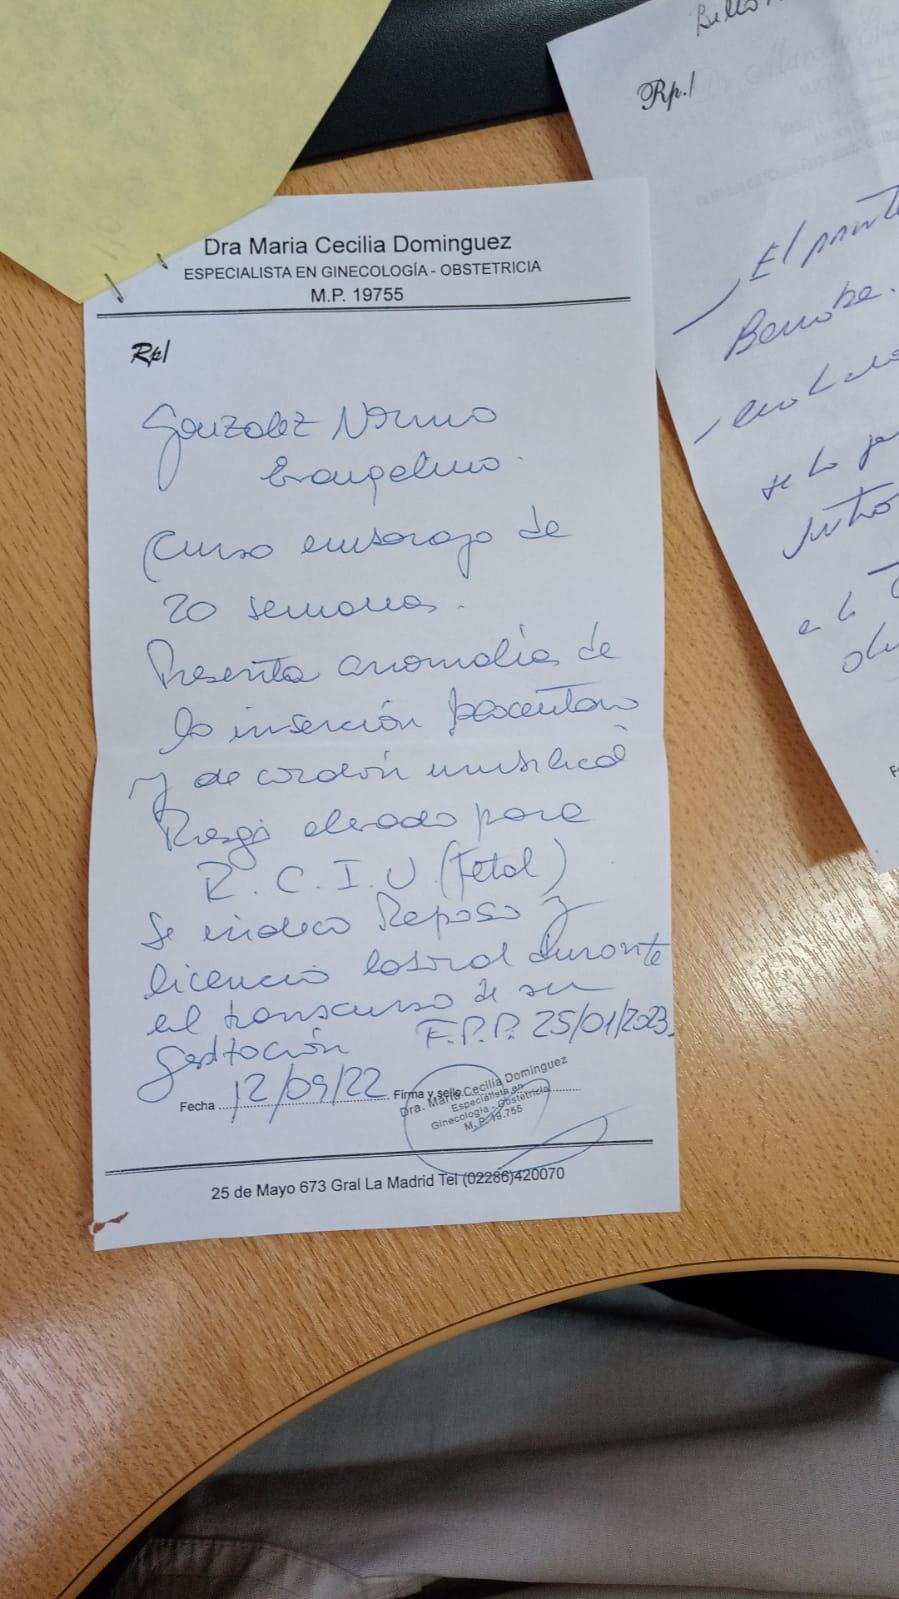 Dra Maria Cecilia Dominguez
ESPECIALISTA EN GINECOLOGÍA - OBSTETRICIA
M.P. 19755
Rp/
Gonzalez Norma
Evangelina.
Cursa embarazo de
20 semanas.
Presenta anomalías de
la inserción placentaria
y de cordón umbilical
Riesgo elevado para
R.C.I.U (Fetal)
Se indica Reposo y
licencia laboral durante
el transcurso de su
gestación F.P.P. 25/01/2023.
Fecha 12/09/22 Firma y sello
Dra. Maria Cecilia Dominguez
Especialista en
Ginecología - Obstetricia
M.P. 19.755
25 de Mayo 673 Gral La Madrid Tel (02286)420070
Rp./
El
se la
a la